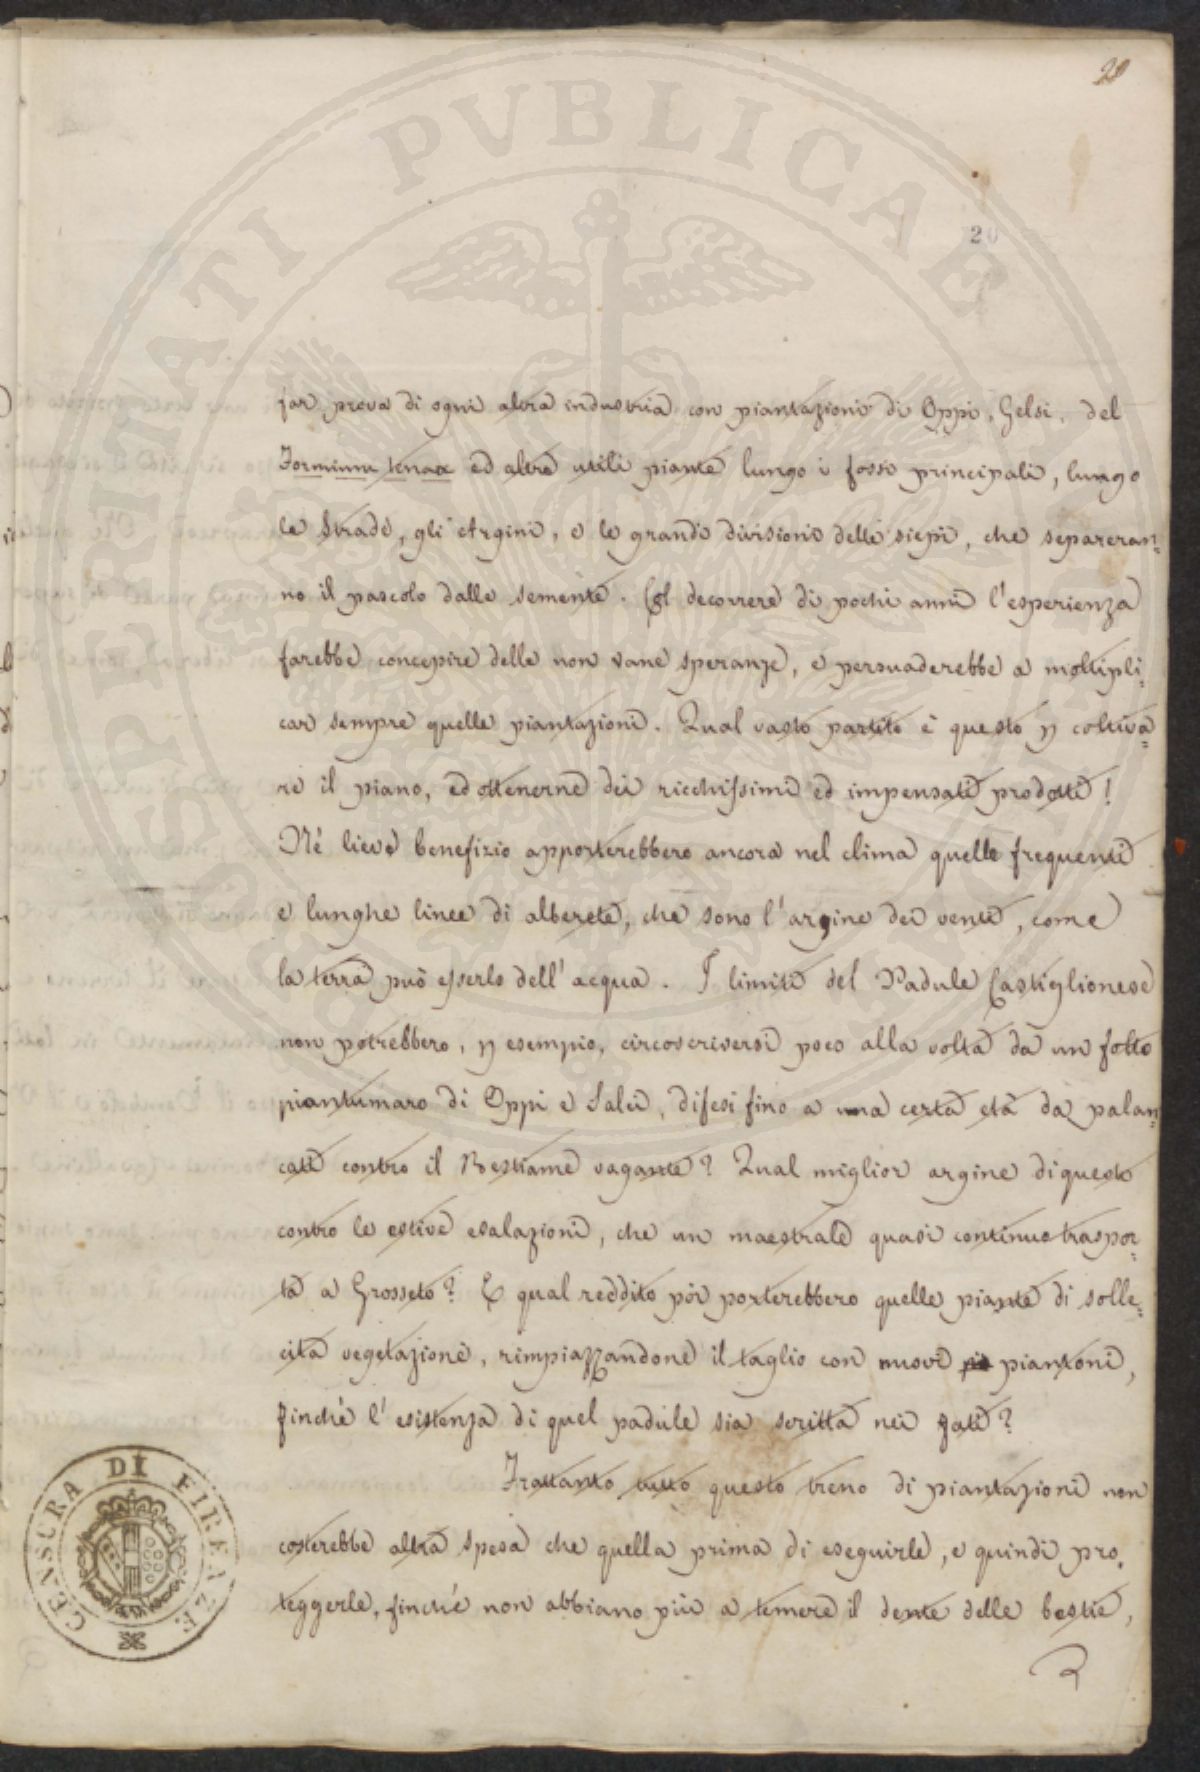 20
20
far prova di ogni altra industria con piantazioni di Oppi, Gelsi, del
Formium tenax ed altre utili piante lungo i fossi principali, lungo
le strade, gli Argini, e le grandi divisioni delle siepi, che separeran=
no il pascolo dalle semente. Col decorrere di pochi anni l'esperienza
farebbe concepire delle non vane speranze, e persuaderebbe a moltipli=
car sempre quelle piantazioni. Qual vasto partito è questo p coltiva=
re il piano, ed ottenerne dei ricchissimi ed impensati prodotti!
Nè lieve benefizio apporterebbero ancora nel clima quelle frequenti
e lunghe linee di alberete, che sono l'argine dei venti, come
la terra può esserlo dell'acqua. I limiti del Padule Castiglionese
non potrebbero, p esempio, circoscriversi poco alla volta da un folto
piantumaro di Oppi e Salci, difesi fino a una certa età da palan=
cati contro il Bestiame vagante? Qual miglior argine di questo
contro le estive esalazioni, che un maestrale quasi continuo traspor=
ta a Grosseto? E qual reddito poi porterebbero quelle piante di solle=
cita vegetazione, rimpiazzandone il taglio con nuovi piantoni,
finchè l'esistenza di quel padule sia scritta nei fati?
Frattanto tutto questo treno di piantazioni non
costerebbe altra spesa che quella prima di eseguirle, e quindi pro=
teggerle, finchè non abbiano più a temere il dente delle bestie,
CENSURA DI FIRENZE
PROSPERITATI PVBLICAE